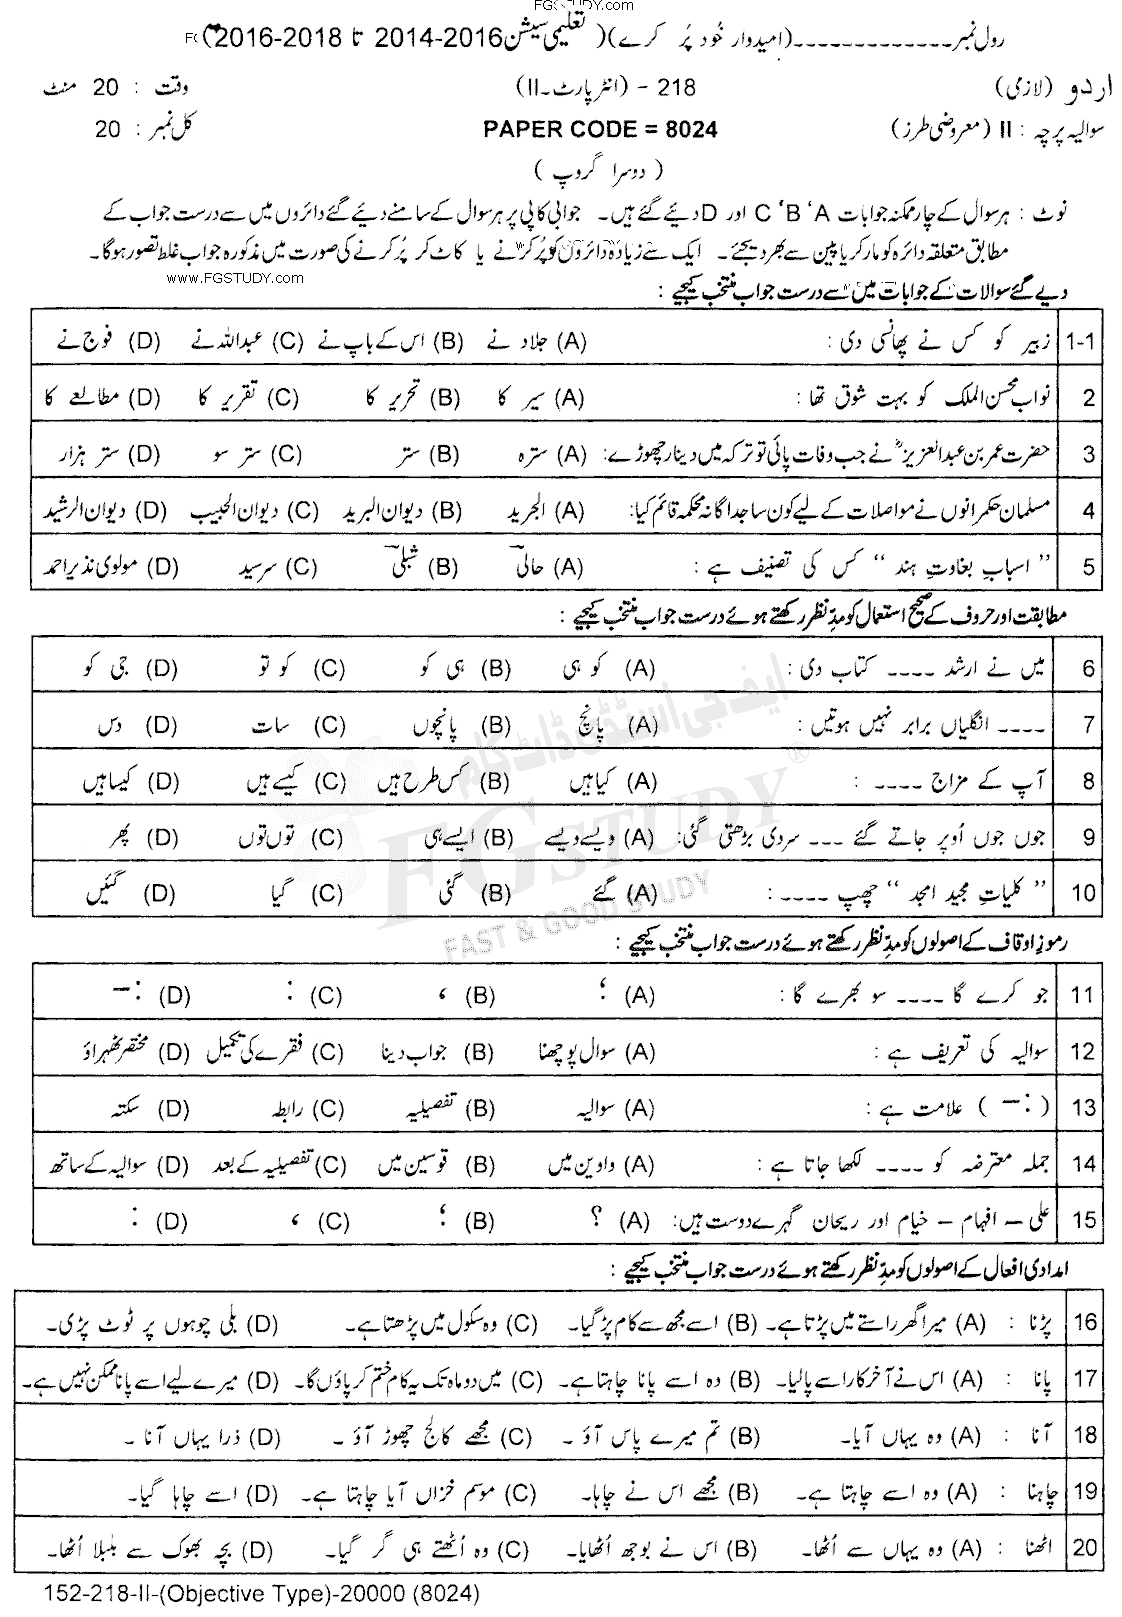 FGSTUDY.com
رول نمبر ------------- (امیدوار خود پُر کرے) (تعلیمی سیشن 2014-2016 تا 2016-2018)
اردو (لازمی) 218 - (انٹر پارٹ-II) وقت : 20 منٹ
سوالیہ پرچہ : II (معروضی طرز) PAPER CODE = 8024 کل نمبر : 20
(دوسرا گروپ)
نوٹ : ہر سوال کے چار ممکنہ جوابات A ، B ، C اور D دئیے گئے ہیں۔ جوابی کاپی پر ہر سوال کے سامنے دئیے گئے دائروں میں سے درست جواب کے
مطابق متعلقہ دائرہ کو مارکر یا پین سے بھر دیجئے۔ ایک سے زیادہ دائروں کو پُر کرنے یا کاٹ کر پُر کرنے کی صورت میں مذکورہ جواب غلط تصور ہوگا۔
www.FGSTUDY.com
دیے گئے سوالات کے جوابات میں سے درست جواب منتخب کیجیے :
1-1 زبیر کو کس نے پھانسی دی : (A) جلاد نے (B) اس کے باپ نے (C) عبداللہ نے (D) فوج نے
2 نواب محسن الملک کو بہت شوق تھا : (A) سیر کا (B) تحریر کا (C) تقریر کا (D) مطالعے کا
3 حضرت عمر بن عبدالعزیزؒ نے جب وفات پائی تو ترکہ میں دینار چھوڑے: (A) سترہ (B) ستر (C) ستر سو (D) ستر ہزار
4 مسلمان حکمرانوں نے مواصلات کے لیے کون سا جداگانہ محکمہ قائم کیا: (A) الجرید (B) دیوان البرید (C) دیوان الحبیب (D) دیوان الرشید
5 "اسبابِ بغاوتِ ہند" کس کی تصنیف ہے : (A) حالی (B) شبلی (C) سرسید (D) مولوی نذیر احمد
مطابقت اور حروف کے صحیح استعمال کو مدِّ نظر رکھتے ہوئے درست جواب منتخب کیجیے :
6 میں نے ارشد ---- کتاب دی : (A) کو ہی (B) ہی کو (C) کو تو (D) جی کو
7 ---- انگلیاں برابر نہیں ہوتیں : (A) پانچ (B) پانچوں (C) سات (D) دس
8 آپ کے مزاج ---- : (A) کیا ہیں (B) کس طرح ہیں (C) کیسے ہیں (D) کیسا ہیں
9 جوں جوں اُوپر جاتے گئے --- سردی بڑھتی گئی: (A) ویسے ویسے (B) ایسے ہی (C) توں توں (D) پھر
10 "کلیاتِ مجید امجد" چھپ ---- : (A) گئے (B) گئی (C) گیا (D) گئیں
رموزِ اوقاف کے اصولوں کو مدِّ نظر رکھتے ہوئے درست جواب منتخب کیجیے :
11 جو کرے گا ---- سو بھرے گا : (A) ؛ (B) ، (C) : (D) :-
12 سوالیہ کی تعریف ہے : (A) سوال پوچھنا (B) جواب دینا (C) فقرے کی تکمیل (D) مختصر ٹھہراؤ
13 ( :- ) علامت ہے : (A) سوالیہ (B) تفصیلیہ (C) رابطہ (D) سکتہ
14 جملہ معترضہ کو ---- لکھا جاتا ہے : (A) واوین میں (B) قوسین میں (C) تفصیلیہ کے بعد (D) سوالیہ کے ساتھ
15 علی – افہام – خیام اور ریحان گہرے دوست ہیں: (A) ؟ (B) ؛ (C) ، (D) :
امدادی افعال کے اصولوں کو مدِّ نظر رکھتے ہوئے درست جواب منتخب کیجیے :
16 پڑنا : (A) میرا گھر راستے میں پڑتا ہے۔ (B) اسے مجھ سے کام پڑ گیا۔ (C) وہ سکول میں پڑھتا ہے۔ (D) بلی چوہوں پر ٹوٹ پڑی۔
17 پانا : (A) اس نے آخر کار اسے پا لیا۔ (B) وہ اسے پانا چاہتا ہے۔ (C) میں دو ماہ تک یہ کام ختم کر پاؤں گا۔ (D) میرے لیے اسے پانا ممکن نہیں ہے۔
18 آنا : (A) وہ یہاں آیا۔ (B) تم میرے پاس آؤ۔ (C) مجھے کالج چھوڑ آؤ۔ (D) ذرا یہاں آنا۔
19 چاہنا : (A) وہ اسے چاہتا ہے۔ (B) مجھے اس نے چاہا۔ (C) موسم خزاں آیا چاہتا ہے۔ (D) اسے چاہا گیا۔
20 اٹھنا : (A) وہ یہاں سے اُٹھا۔ (B) اس نے بوجھ اُٹھایا۔ (C) وہ اُٹھتے ہی گر گیا۔ (D) بچہ بھوک سے بلبلا اُٹھا۔
152-218-II-(Objective Type)-20000 (8024)
ایف جی اسٹڈی ڈاٹ کام
FGSTUDY ®
FAST & GOOD STUDY